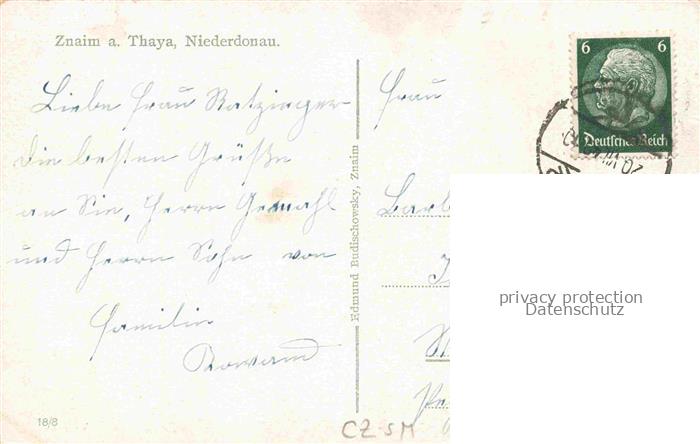 Znaim a. Thaya, Niederdonau.
Liebe Frau Ratzinger
Die besten Grüße
an Sie, Herrn Gemahl
und Herrn Sohn von
Familie
Edmund Budischowsky, Znaim
18/8
Frau
Barb
6 6
Deutsches Reich
CZ SM
privacy protection
Datenschutz